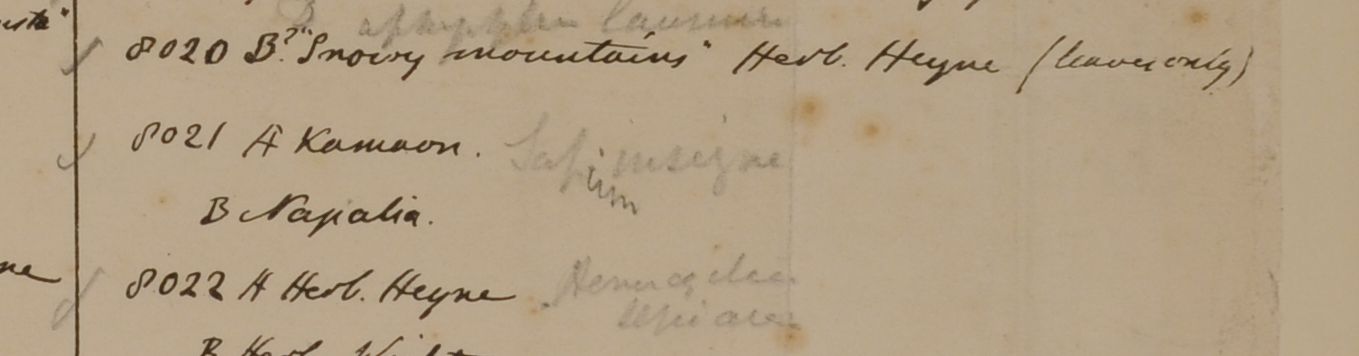 8020 B? "Snowy mountains" Herb. Heyne (leaves only)
8021 A Kamaon. Sapium insigne
B Napalia.
8022 A Herb. Heyne
B Herb.